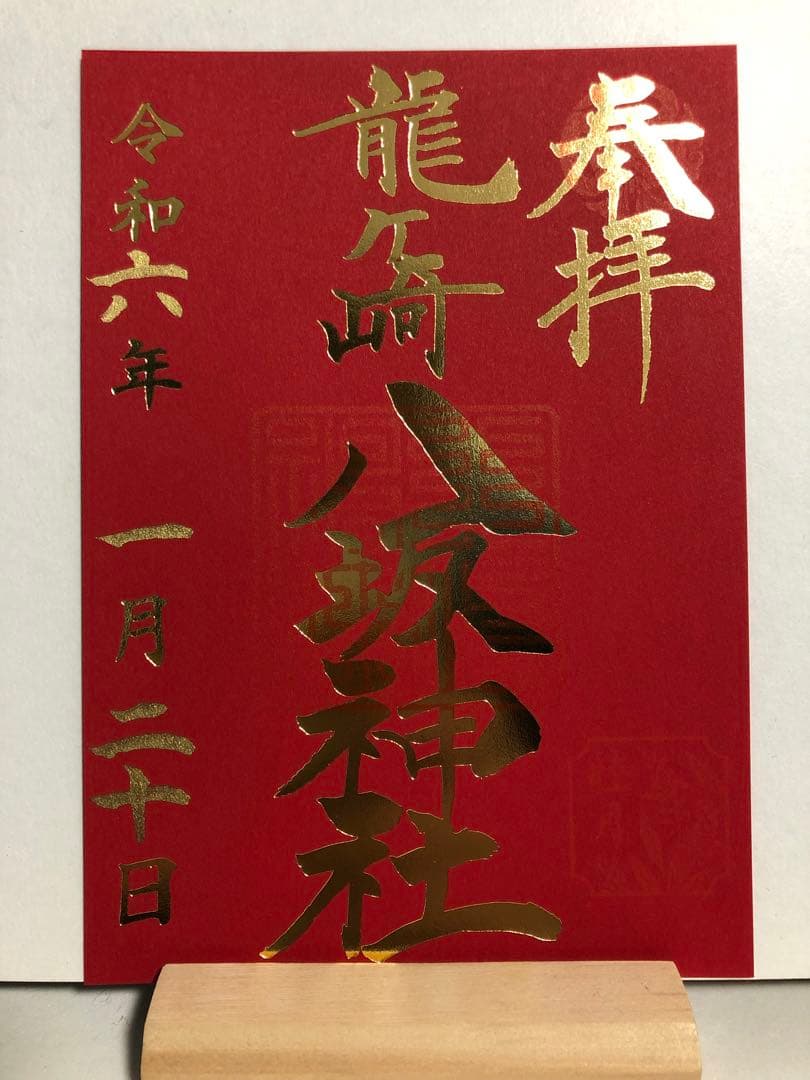 奉拝
龍ヶ崎
八坂神社
令和六年 一月二十日